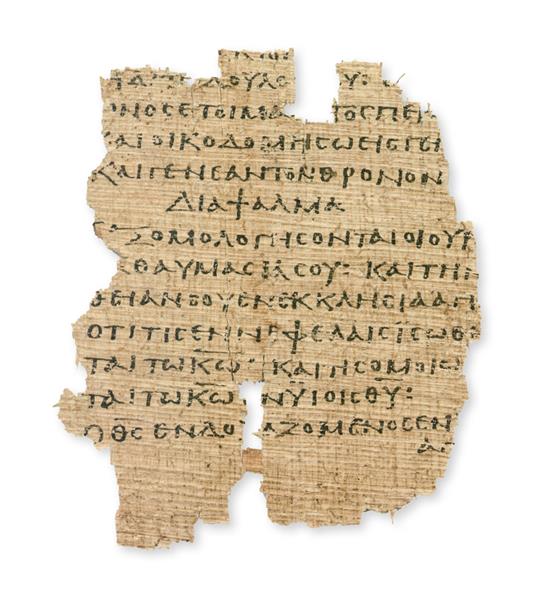 ΔΑ ΔΟΥΛΩ Υ:
ΩΝΟΣ ΕΤΟΙΜΑ ΤΟ ΣΠΕΡ
ΚΑΙ ΟΙΚΟΔΟΜΗΣΩ ΕΙΣ ΓΕΝ
ΚΑΙ ΓΕΝΕΑΝ ΤΟΝ ΘΡΟΝΟΝ
ΔΙΑΨΑΛΜΑ
ΞΟΜΟΛΟΓΗΣΟΝΤΑΙ ΟΙ ΟΥΡ
ΘΑΥΜΑΣΙΑ ΣΟΥ: ΚΑΙ ΤΗΝ
ΘΕΙΑΝ ΣΟΥ ΕΝ ΕΚΚΛΗΣΙΑ ΑΓ
ΟΤΙ ΤΙΣ ΕΝ ΝΕΦΕΛΑΙΣ ΙΣΩΘ
ΤΑΙ ΤΩ Κ̅Ω̅ ΚΑΙ ΤΙΣ ΟΜΟΙΩ
ΤΑΙ ΤΩ Κ̅Ω̅ ΕΝ ΫΙΟΙΣ Θ̅Υ̅:
Ο Θ̅Σ̅ ΕΝΔΟΞΑΖΟΜΕΝΟΣ ΕΝ